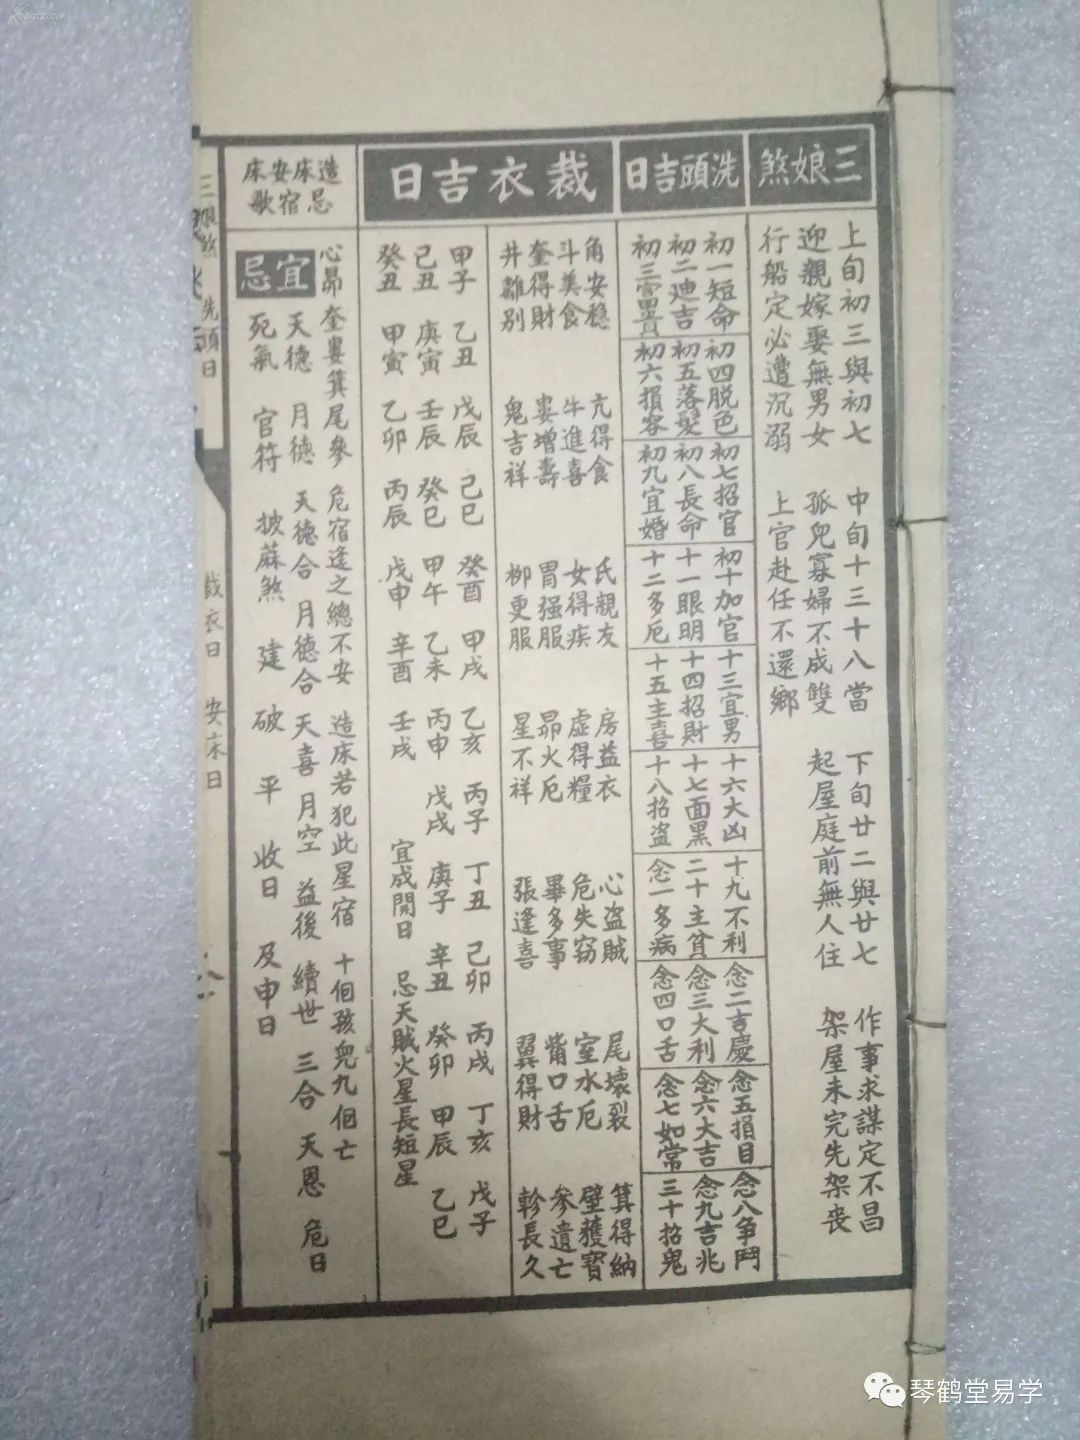 三娘煞
上旬初三與初七 中旬十三十八當 下旬廿二與廿七 作事求謀定不昌
迎親嫁娶無男女 孤兒寡婦不成雙 起屋庭前無人住 架屋未完先架丧
行船定必遭沉溺 上官赴任不還鄉
洗頭吉日
初一短命
初二迪吉
初三富貴
初四脱色
初五落髮
初六損容
初七招官
初八長命
初九宜婚
初十加官
十一眼明
十二多厄
十三宜男
十四招財
十五主喜
十六大凶
十七面黑
十八招盗
十九不利
二十主貧
念一多病
念二吉慶
念三大利
念四口舌
念五損目
念六大吉
念七如常
念八争鬥
念九吉兆
三十招鬼
裁衣吉日
角安穏 亢得食 氐親友 房益衣 心盗賊 尾壊裂 箕得納
斗美食 牛進喜 女得疾 虚得糧 危失窃 室水厄 壁獲寳
奎得財 婁增壽 胃强服 昴火厄 畢多事 觜口舌 参遺亡
井離别 鬼吉祥 柳更服 星不祥 張逢喜 翼得財 軫長久
甲子 乙丑 戊辰 己巳 癸酉 甲戌 乙亥 丙子 丁丑 己卯 丙戌 丁亥 戊子
己丑 庚寅 壬辰 癸巳 甲午 乙未 丙申 戊戌 庚子 辛丑 癸卯 甲辰 乙巳
癸丑 甲寅 乙卯 丙辰 戊申 辛酉 壬戌 宜成開日 忌天賊火星長短星
造床安床
忌宿歌
心昴奎婁箕尾參 危宿逢之總不安 造床若犯此星宿 十個孩兒九個亡
宜 天德 月德 天德合 月德合 天喜 月空 益後 續世 三合 天恩 危日
忌 死氣 官符 披蔴煞 建 破 平 收日 及申日
洗頭日
裁衣日
安床日
琴鹤堂易学